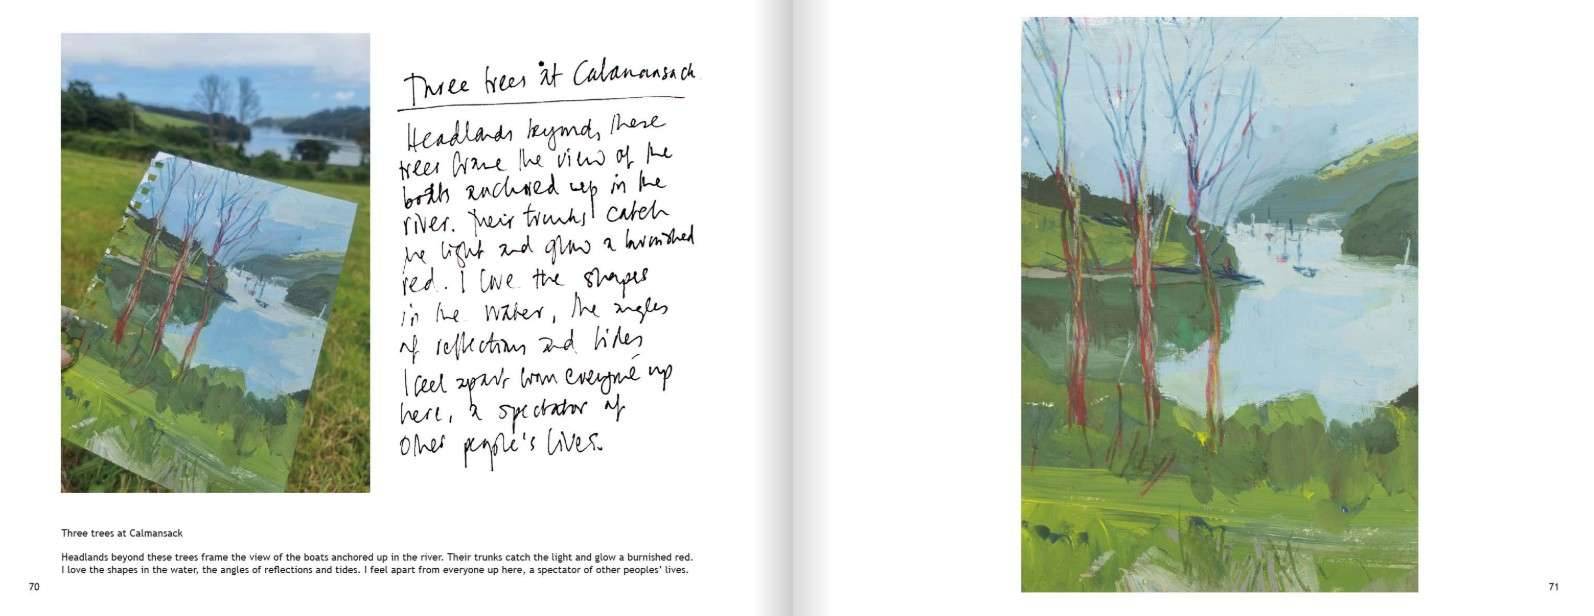 Three trees at Calamansack
Headlands beyond, these
trees frame the view of the
boats anchored up in the
river. Their trunks catch
the light and glow a burnished
red. I love the shapes
in the water, the angles
of reflections and tides
I feel apart from everyone up
here, a spectator of
other people's lives.
Three trees at Calmansack
Headlands beyond these trees frame the view of the boats anchored up in the river. Their trunks catch the light and glow a burnished red.
I love the shapes in the water, the angles of reflections and tides. I feel apart from everyone up here, a spectator of other peoples' lives.
70
71